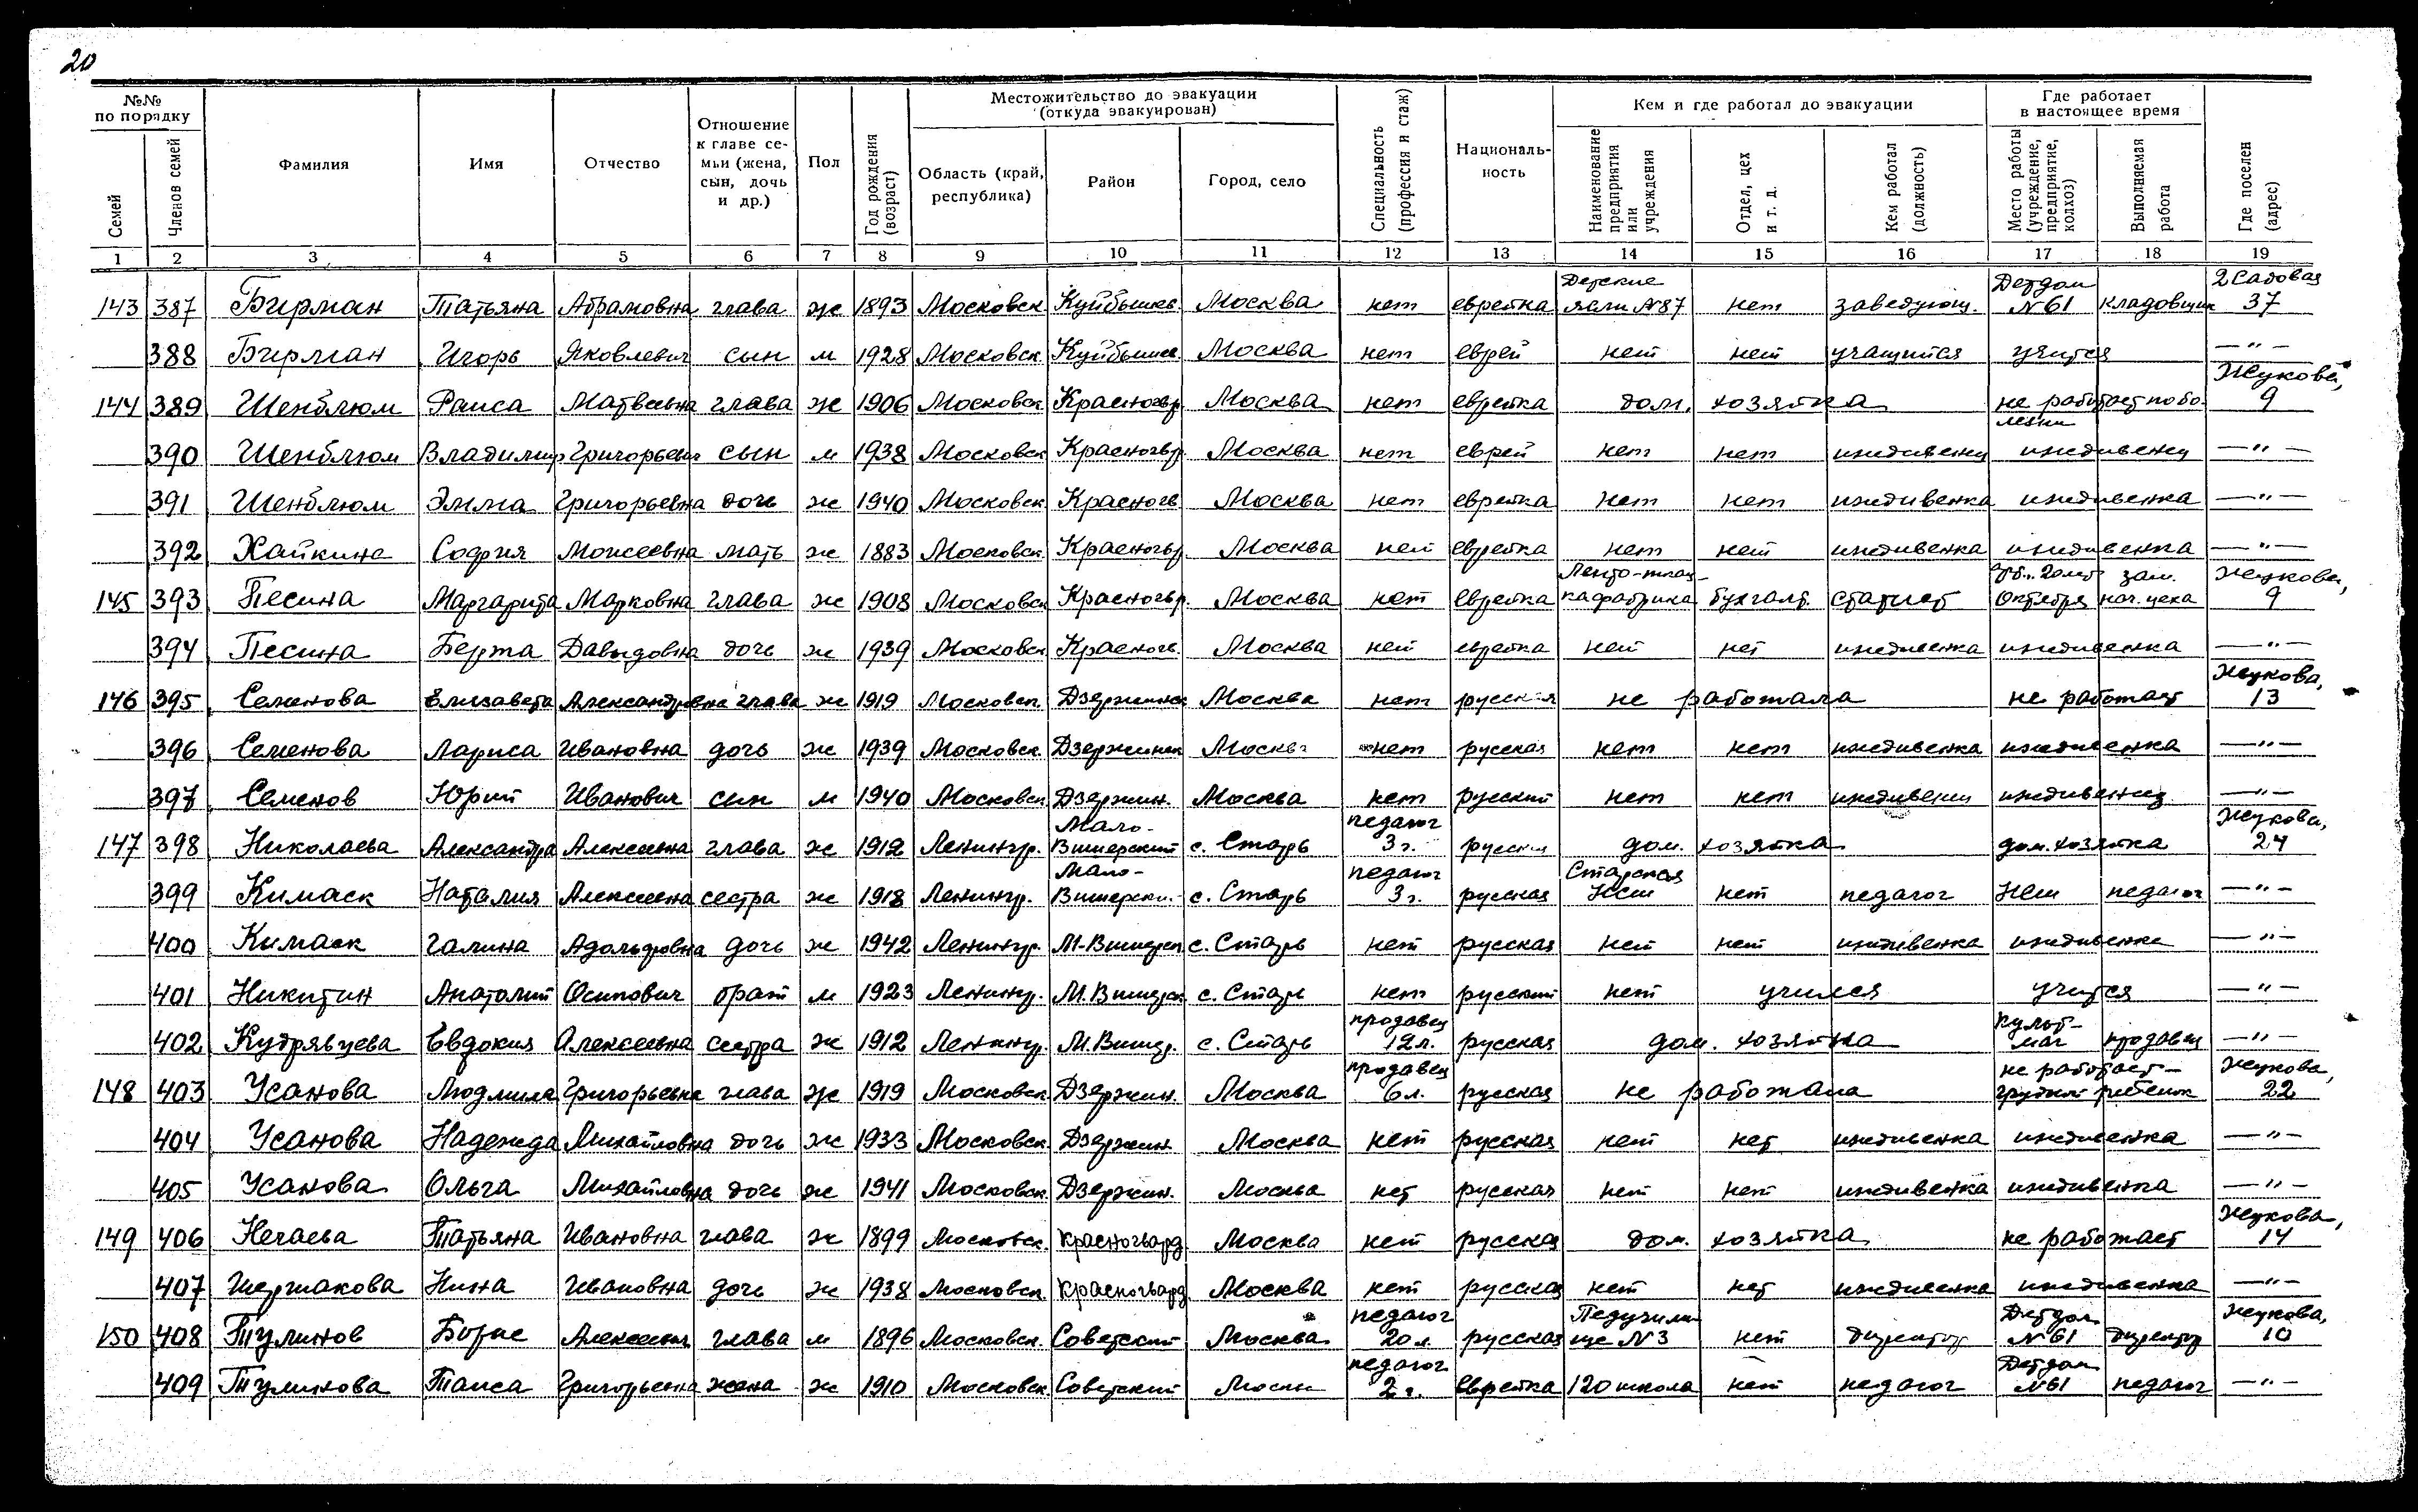 20
№№ по порядку
Семей
Членов семей
Фамилия
Имя
Отчество
Отношение к главе семьи (жена, сын, дочь и др.)
Пол
Год рождения (возраст)
Местожительство до эвакуации (откуда эвакуирован)
Область (край, республика)
Район
Город, село
Специальность (профессия и стаж)
Националь-ность
Кем и где работал до эвакуации
Наименование предприятия или учреждения
Отдел, цех и т. д.
Кем работал (должность)
Где работает в настоящее время
Место работы (учреждение, предприятие, колхоз)
Выполняемая работа
Где поселен (адрес)
1 2 3 4 5 6 7 8 9 10 11 12 13 14 15 16 17 18 19
143 387 Бирман Татьяна Абрамовна глава ж 1893 Московск. Куйбышев. Москва нет еврейка Детские ясли №87 нет заведующ. Детдом №61 кладовщик 2 Садовая 37
388 Бирман Игорь Яковлевич сын м 1928 Московск. Куйбышев. Москва нет еврей нет нет учащийся учится —"—
144 389 Шенблюм Раиса Матвеевна глава ж 1906 Московск. Красногв. Москва нет еврейка дом. хозяйка не работает по болезни Жукова, 9
390 Шенблюм Владимир Григорьевич сын м 1938 Московск. Красногв. Москва нет еврей нет нет иждивенец иждивенец —"—
391 Шенблюм Эмма Григорьевна дочь ж 1940 Московск. Красногв. Москва нет еврейка нет нет иждивенка иждивенка —"—
392 Хайкина София Моисеевна мать ж 1883 Московск. Красногв. Москва нет еврейка нет нет иждивенка иждивенка —"—
145 393 Песина Маргарита Марковна глава ж 1908 Московск. Красногвр. Москва нет еврейка Ленто-ткац-ка фабрика бухгалт. статист Октября зам. нач. цеха Жукова, 9
394 Песина Берта Давыдовна дочь ж 1939 Московск. Красногв. Москва нет еврейка нет нет иждивенка иждивенка —"—
146 395 Семенова Елизавета Александровна глава ж 1919 Московск. Дзержинск Москва нет русская не работала не работает Жукова, 13
396 Семенова Лариса Ивановна дочь ж 1939 Московск. Дзержинск Москва нет русская нет нет иждивенка иждивенка —"—
397 Семенов Юрий Иванович сын м 1940 Московск. Дзержин. Москва нет русский нет нет иждивенец иждивенец —"—
147 398 Николаева Александра Алексеевна глава ж 1912 Ленингр. Мало-Вишерский с. Старь педагог 3 г. русская дом. хозяйка дом. хозяйка Жукова, 24
399 Кимаск Наталия Алексеевна сестра ж 1918 Ленингр. Мало-Вишерск. с. Старь педагог 3 г. русская Старская Нсш нет педагог Нсш педагог —"—
400 Кимаск Галина Адольфовна дочь ж 1942 Ленингр. М-Вишерск. с. Старь нет русская нет нет иждивенка иждивенка —"—
401 Никитин Анатолий Осипович брат м 1923 Ленингр. М. Вишерск. с. Старь нет русский нет учился учится —"—
402 Кудрявцева Евдокия Алексеевна сестра ж 1912 Ленингр. М. Вишер. с. Старь продавец 12 л. русская дом. хозяйка Культ-маг продавец —"—
148 403 Усанова Людмила Григорьевна глава ж 1919 Московск. Дзержин. Москва продавец 6 л. русская не работала не работает — грудной ребенок Жукова, 22
404 Усанова Надежда Михайловна дочь ж 1933 Московск. Дзержин. Москва нет русская нет нет иждивенка иждивенка —"—
405 Усанова Ольга Михайловна дочь ж 1941 Московск. Дзержин. Москва нет русская нет нет иждивенка иждивенка —"—
149 406 Нечаева Татьяна Ивановна глава ж 1899 Московск. Красногвард. Москва нет русская дом. хозяйка не работает Жукова, 14
407 Шершакова Нина Ивановна дочь ж 1938 Московск. Красногвард. Москва нет русская нет нет иждивенка иждивенка —"—
150 408 Тулинов Борис Алексеевич глава м 1896 Московск. Советский Москва педагог 20 л. русская Педучили-ще №3 нет директор Детдом №61 директор Жукова, 10
409 Тулинова Таиса Григорьевна жена ж 1910 Московск. Советский Москва педагог 2 г. еврейка 120 школа нет педагог Детдом №61 педагог —"—